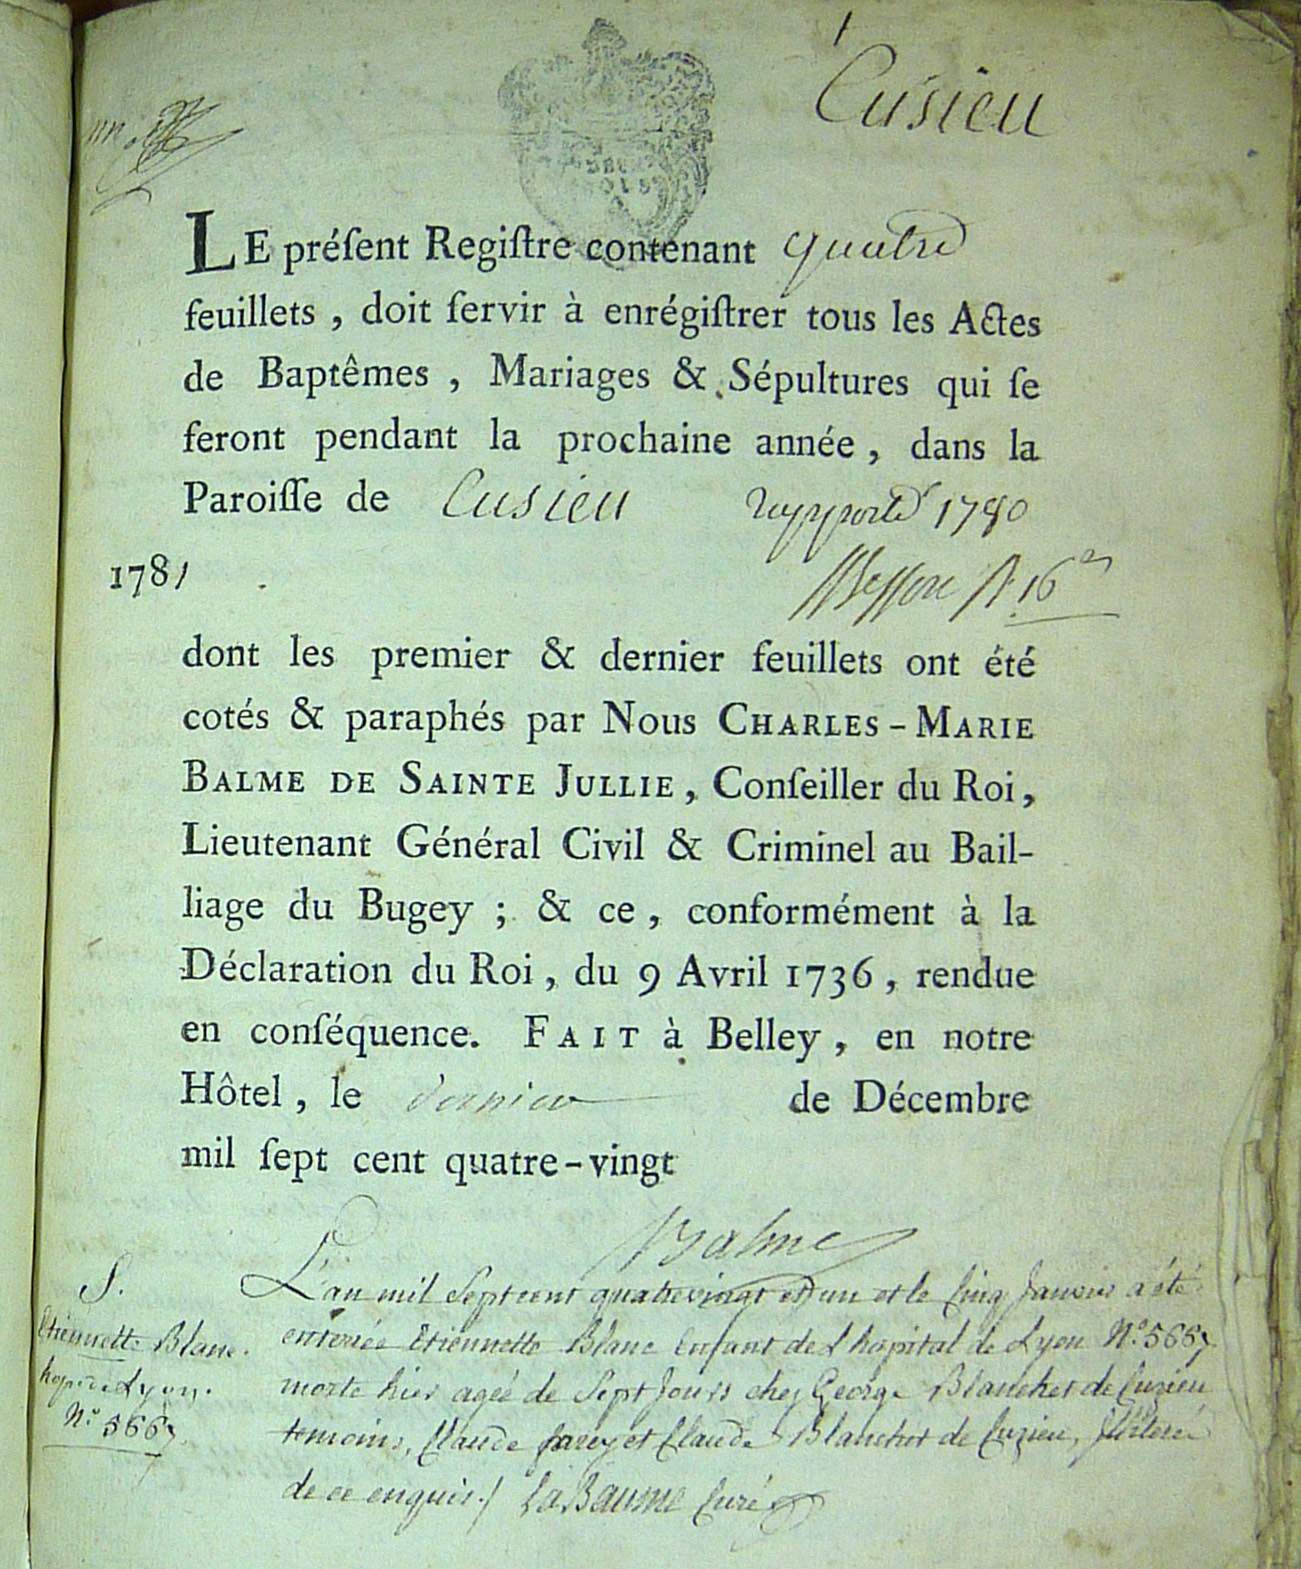 Cusieu
LE préſent Regiſtre contenant quatre
feuillets, doit ſervir à enrégiſtrer tous les Actes
de Baptêmes, Mariages & Sépultures qui ſe
feront pendant la prochaine année, dans la
Paroiſſe de Cusieu rapporté 1780
1781
16
dont les premier & dernier feuillets ont été
cotés & paraphés par Nous CHARLES-MARIE
BALME DE SAINTE JULLIE, Conſeiller du Roi,
Lieutenant Général Civil & Criminel au Bail-
liage du Bugey; & ce, conformément à la
Déclaration du Roi, du 9 Avril 1736, rendue
en conſéquence. FAIT à Belley, en notre
Hôtel, le dernier de Décembre
mil ſept cent quatre-vingt
Balme
S.
Etiennette Blanc.
hop. de Lyon.
N.° 5667
L'an mil Sept cent quatrevingt et un et le Cinq Janvier a été
enterrée Etiennette Blanc Enfant de L'hopital de Lyon N.° 5667
morte hier agée de Sept Jours chez George Blanchet de Cuzieu
temoins, Claude et Claude Blanchet de Cuzieu, Jllitere
de ce enquis./ LaBaume Curé